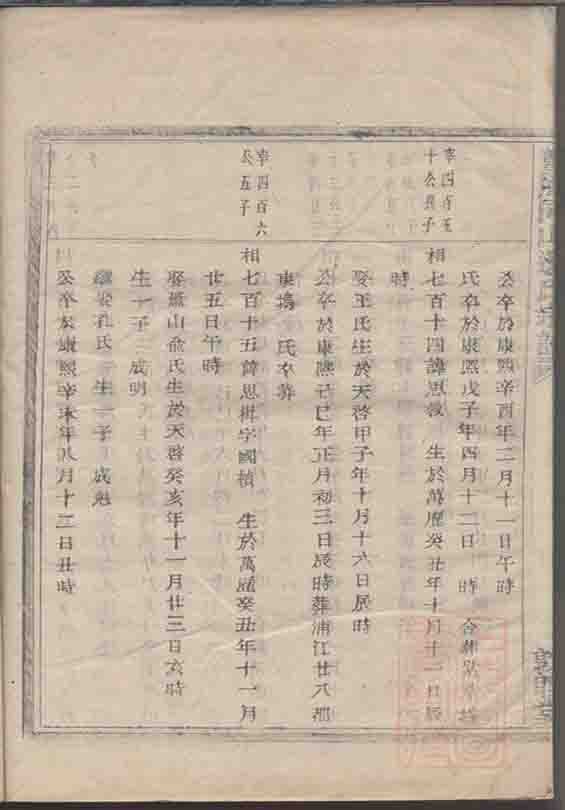 公卒於康熙辛酉年二月十一日午時
氏卒於康熙戊子年四月十二日 時 合葬
宰四百五
十公長子
相七百十四諱思教 生於萬曆癸丑年十月十一日辰
時
娶王氏生於天啓甲子年十月十六日辰時
公卒於康熙己巳年正月初三日辰時葬浦江廿八都
東塢 氏卒葬
宰四百六
公五子
相七百十五諱思 字國楨 生於萬曆癸丑年十一月
廿五日午時
娶 山俞氏生於天啓癸亥年十一月廿三日亥時
生一子 成明
繼娶孔氏 生一子 成魁
公卒於康熙辛未年八月十二日丑時